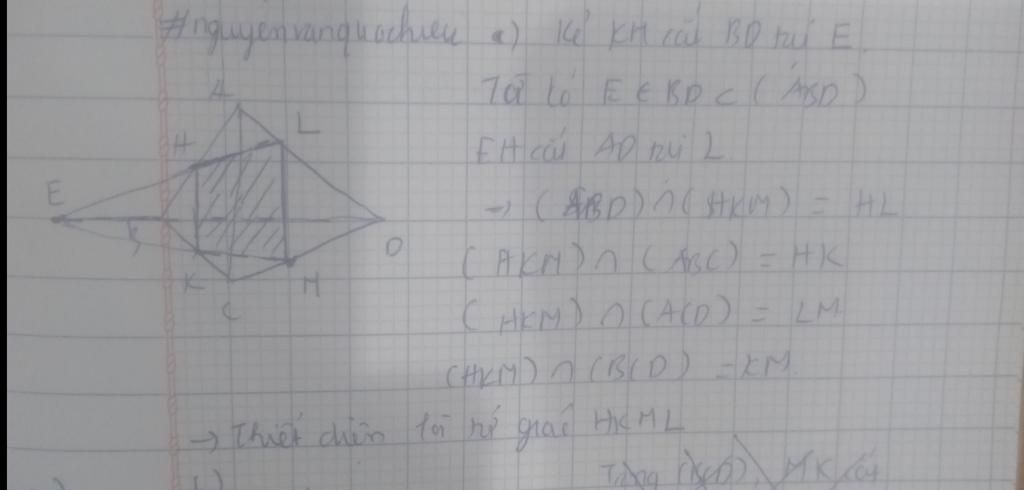 #nguyenvanquochieu a) Kẻ KM cắt BD tại E.
Ta có E ∈ BD ⊂ (ABD)
EH cắt AD tại L
→ (ABD) ∩ (HKM) = HL
(HKM) ∩ (ABC) = HK
(HKM) ∩ (ACD) = LM
(HKM) ∩ (BCD) = KM.
→ Thiết diện là tứ giác HKML
A
H
L
E
B
D
K
M
C
Trong
b)